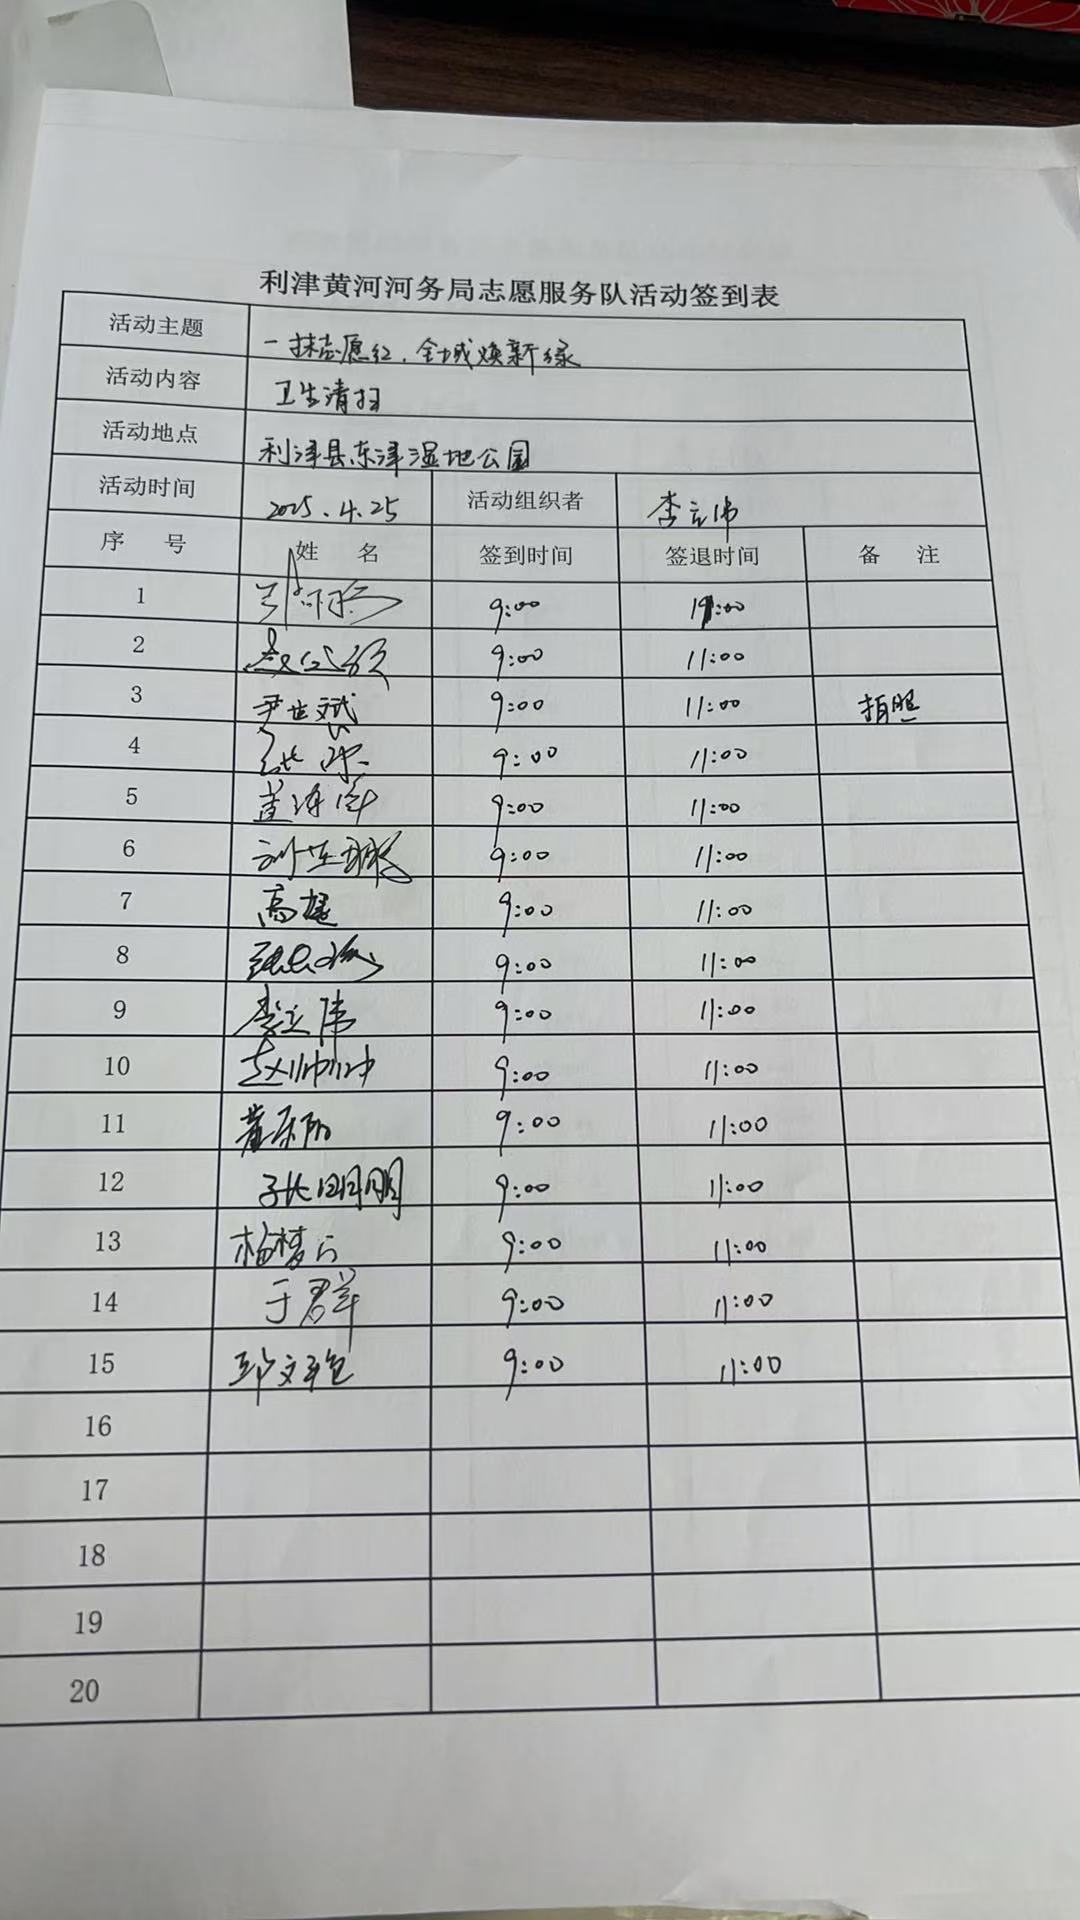 利津黄河河务局志愿服务队活动签到表
活动主题 一抹志愿红,全城焕新绿
活动内容 卫生清扫
活动地点 利津县东津湿地公园
活动时间 2025.4.25 活动组织者 李立伟
序 号 姓 名 签到时间 签退时间 备 注
1 9:00 11:00
2 9:00 11:00
3 尹世斌 9:00 11:00 拍照
4 9:00 11:00
5 9:00 11:00
6 9:00 11:00
7 高健 9:00 11:00
8 9:00 11:00
9 李立伟 9:00 11:00
10 赵帅帅 9:00 11:00
11 9:00 11:00
12 张明明 9:00 11:00
13 9:00 11:00
14 于君羊 9:00 11:00
15 9:00 11:00
16
17
18
19
20